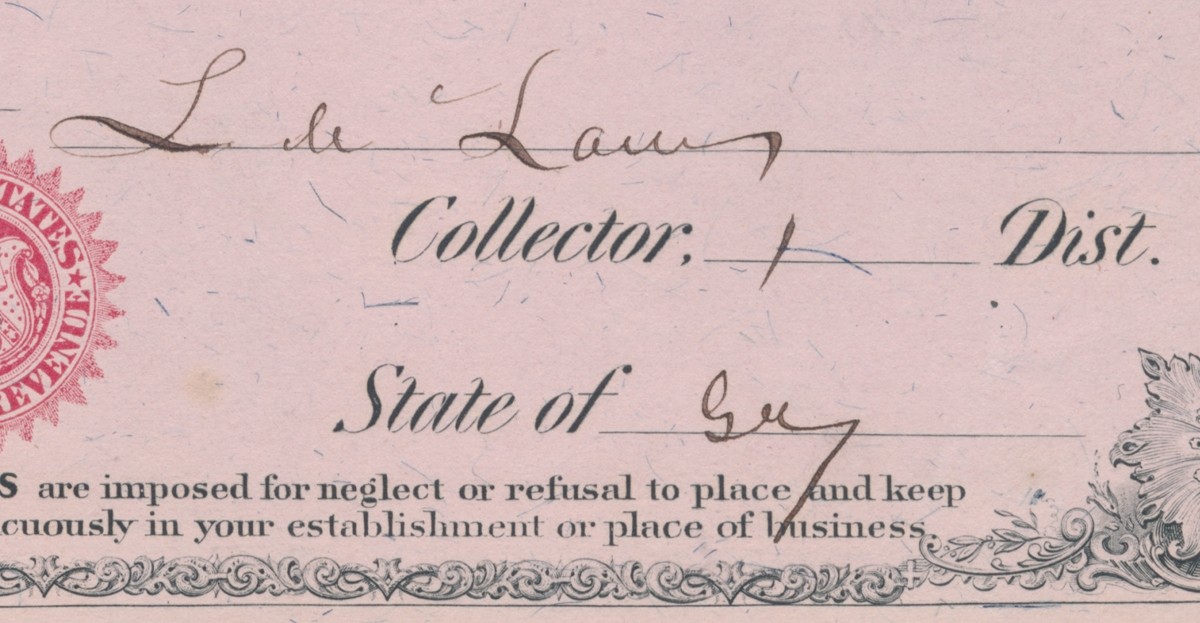 L de Laws
Collector, 1 Dist.
STATES ★ REVENUE
State of
S are imposed for neglect or refusal to place and keep
cuously in your establishment or place of business.